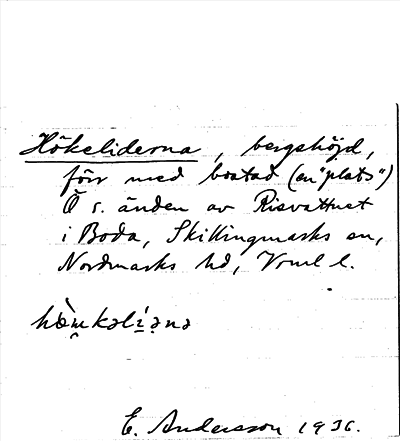 Hökeliderna, bergshöjd,
förr med bostad (en "plats")
Ö s. änden av Risvattnet
i Boda, Skillingmarks sn,
Nordmarks hd, Vrml l.
E. Andersson 1936.